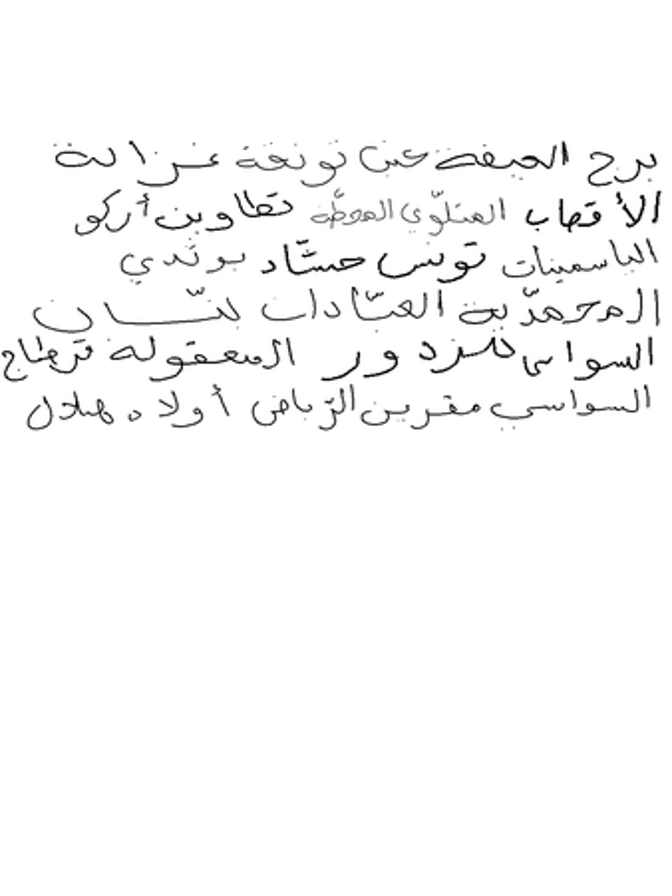 برج الحيفة عين تونقة غزالة
الأقصاب المتلوّي المحطّة تطاوين أركو
الياسمينات تونس حشّاد بوثدي
المحمّدية العبّادات لبّان
السواسي للزدور المعقولة قرطاج
السواسي مقرين الرّياض أولاد هلال